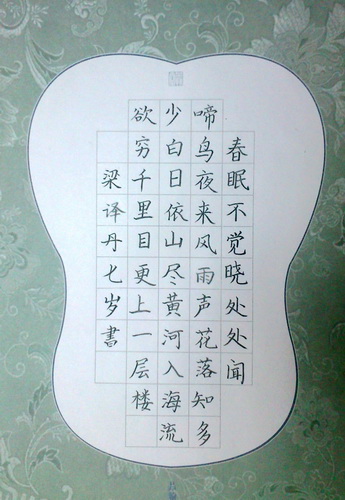 春眠不觉晓处处闻
啼鸟夜来风雨声花落知多
少白日依山尽黄河入海流
欲穷千里目更上一层楼
梁译丹七岁書